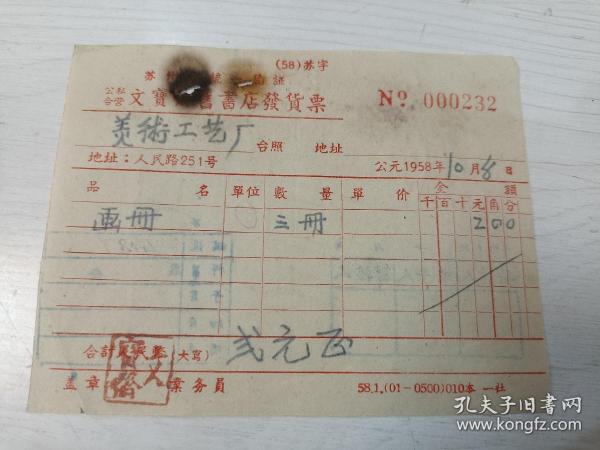 (58)苏字
苏
公私合营 文寶 舊書店發貨票
№ 000232
美術工艺厂 台照 地址
地址：人民路251号 公元1958年10月8日
品名 單位 數量 單价 金額
千百十元角分
画冊 三冊 200
合計人民幣(大寫) 弍元正
文寶齋
蓋章 業务員 58.1.(01-0500)010本 一社
孔夫子旧书网
www.kongfz.com